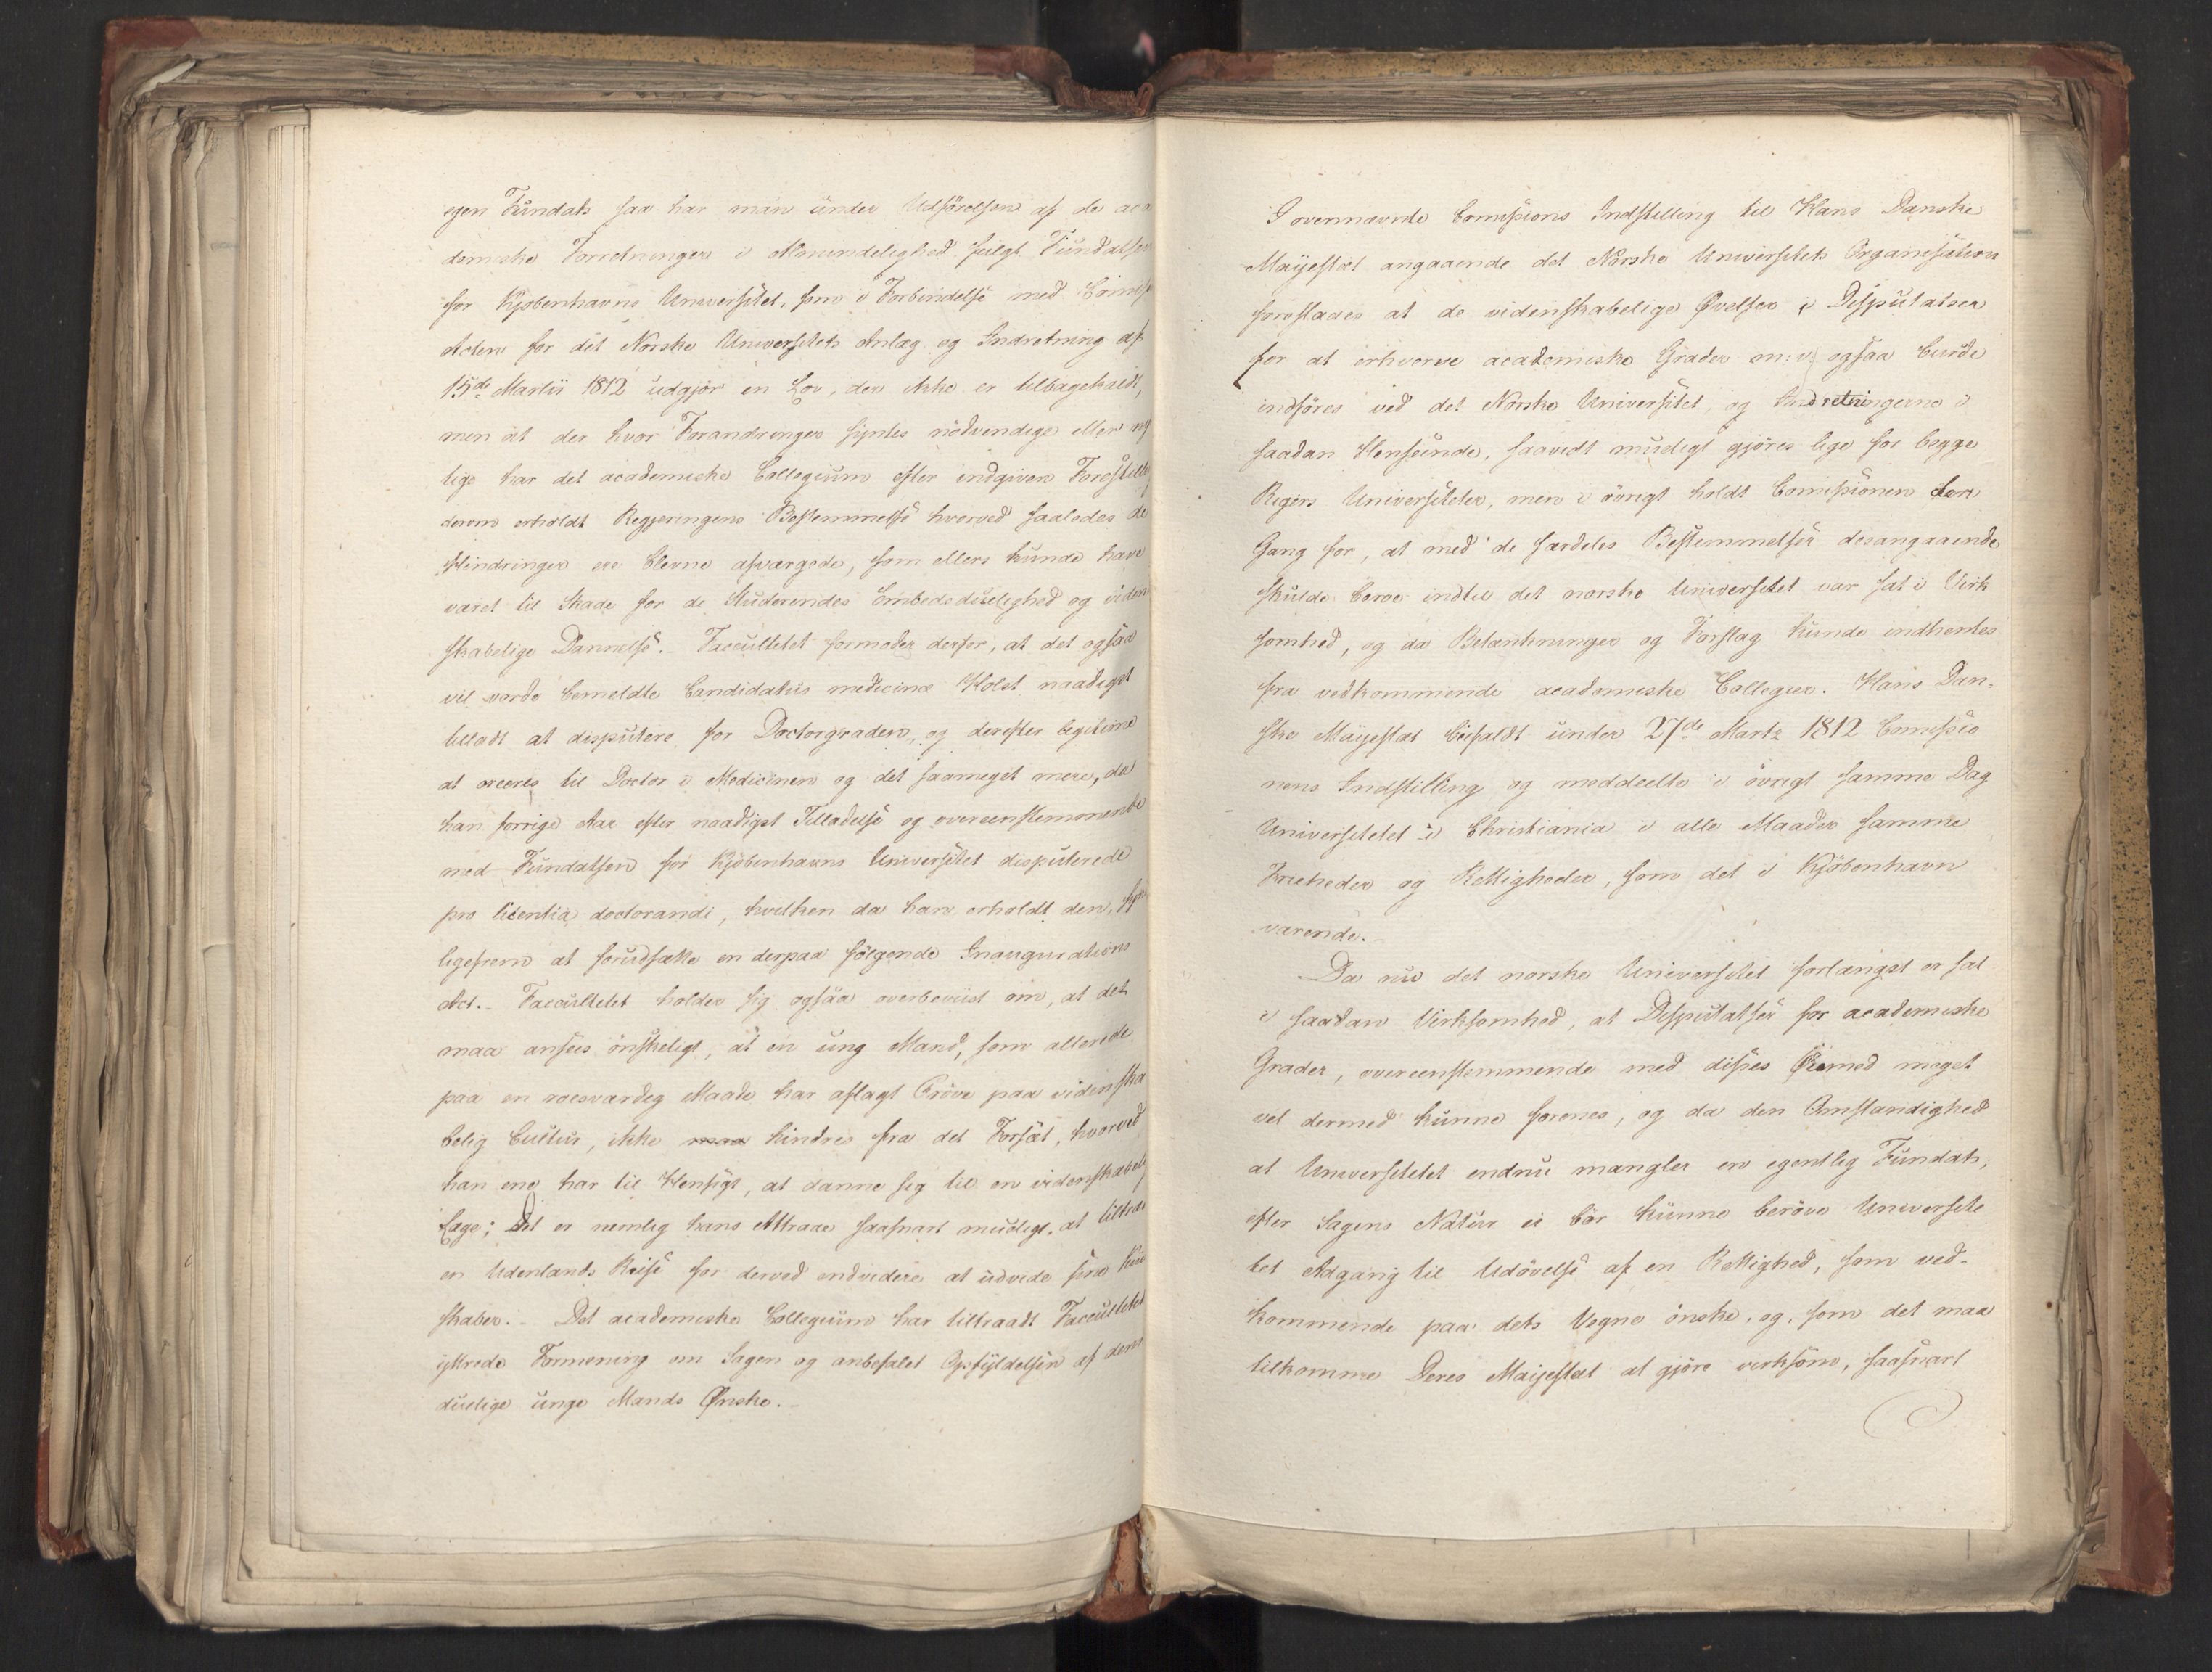 egen Fundats saa har man under Udførelsen af de aca
demiske Forretninger i Almindelighed fulgt Fundatsen
for Kjøbenhavns Universitet, som i Forbindelse med Commis
Acten for det Norske Universitets Anlæg og Indretning af
15de Martii 1812 udgjør en Lov, der ikke er tilbagekaldt,
men at der hvor Forandringer syntes nødvendige eller ny
tige har det academiske Collegium efter indgiven Forestilli
derom erholdt Regjeringens Bestemmelse hvorved saaledes de
Hindringer ere blevne afværgede, som ellers kunde have
været til Skade for de Studerendes Embedsduelighed og viden
skabelige Dannelse. - Facultetet formoder derfor, at det ogsaa
vil vorde bemeldte Candidatus medicinæ Holst naadigst
tilladt at disputere for Doctorgraden, og derefter legitime
at creeres til Doctor i Medicinen og det saameget mere, da
han forrige Aar efter naadigst Tilladelse og overeenstemmende
med Fundatsen for Kjøbenhavns Universitet disputerede
pro licentia doctorandi, hvilken da han erholdt den, synes
ligefrem at forudsætte en derpaa følgende Inaugurations
Act. - Facultetet holder sig ogsaa overbeviist om, at det
maa ansees ønskeligt, at en ung Mand, som allerede
paa en roesværdig Maade har aflagt Prøve paa videnska
belig Cultur, ikke maa hindres fra det Forsæt, hvorved
han ene har til Hensigt, at danne sig til en videnskabelig
Læge; Det er nemlig hans Attraae saasnart mueligt, at tiltræde
en Udenlands Reise for derved endvidere at udvide sine Kund
skaber. - Det academiske Collegium har tiltraadt Facultetets
yttrede Formening om Sagen og anbefalet Opfyldelsen af denne
duelige unge Mands Ønske. -
I ovennævnte Commissions Indstilling til Hans Danske
Majestæt angaaende det Norske Universitets Organisation
foresloges at de videnskabelige Øvelser i Disputatser
for at erhverve academiske Grader m: v: ogsaa burde
indføres ved det Norske Universitet, og Indretningerne i
saadan Henseende, saavidt mueligt gjøres lige for begge
Rigers Universiteter, men i øvrigt holdt Commissionen den
Gang for, at med de særdeles Bestemmelser desangaaende
skulde beroe indtil det norske Universitet var sat i Virk
somhed, og da Betænkninger og Forslag kunde indhentes
fra vedkommende academiske Collegier. Hans Dan-
ske Majestæt bifaldt under 27de Marts 1812 Commissio
nens Indstilling og meddeelte i øvrigt samme Dag
Universitetet i Christiania i alle Maader samme
Friheder og Rettigheder, som det i Kjøbenhavn
værende. -
Da nu det norske Universitet forlængst er sat
i saadan Virksomhed, at Disputatser for academiske
Grader, overeenstemmende med disses Øiemed meget
vel dermed kunne forenes, og da den Omstændighed
at Universitetet endnu mangler en egentlig Fundats,
efter Sagens Natur ei bør kunne berøve Universite
tet Adgang til Udøvelse af en Rettighed, som ved-
kommende paa dets Vegne ønske, og, som det maa
tilkomme Deres Majestæt at gjøre virksom, saasnart